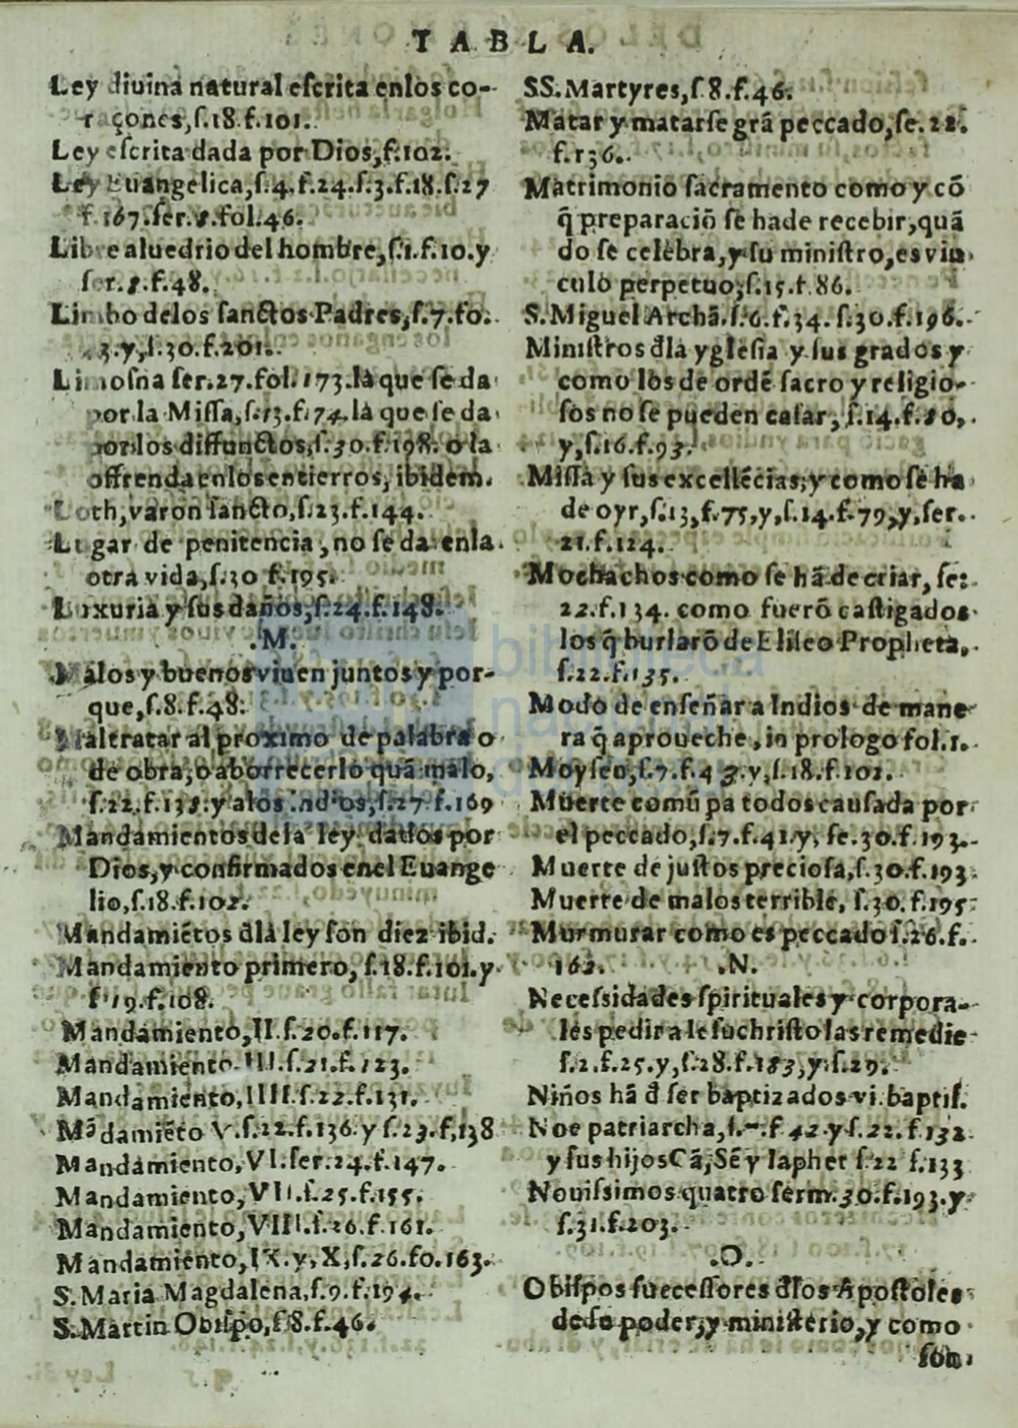 TABLA.
Ley diuina natural escrita enlos co-
raçones,s.18.f.101.
Ley escrita dada por Dios,f.102.
Ley Euangelica,s.4.f.24.s.3.f.18.s.27
f.167.ser.8.fol.46.
Libre aluedrio del hombre,s.1.f.10.y
ser.8.f.48.
Limbo delos sanctos Padres,s.7.fo.
3.y,s.30.f.201.
Limosna ser.27.fol.173.la que se da
por la Missa,s.13.f.74.la que se da
por los diffunctos,s.30.f.198. o la
offrenda enlos entierros, ibidem.
Loth,varon sancto,s.23.f.144.
Lugar de penitencia, no se da enla
otra vida,s.30 f.195.
Luxuria y sus daños,s.24.f.148.
.M.
Malos y buenos viuen juntos y por-
que,s.8.f.48.
Maltratar al proximo de palabra o
de obra, o aborrecerlo quã malo,
s.22.f.138.y alos Indios,s.27 f.169
Mandamientos dela ley dados por
Dios,y confirmados enel Euange
lio,s.18.f.102.
Mandamiẽtos đla ley son diez ibid.
Mandamiento primero, s.18.f.101.y
s.19.f.108.
Mandamiento,II.s.20.f.117.
Mandamiento III.s.21.f.123.
Mandamiento,IIII.s.22.f.131.
Mãdamiẽto V.s.22.f.136.y s.23.f,138
Mandamiento,VI.ser.24.f.147.
Mandamiento,VII.s.25.f.155.
Mandamiento,VIII.s.26.f.161.
Mandamiento,IX.y,X,s.26.fo.163.
S.Maria Magdalena,s.9.f.194.
S.Martin Obispo,s.8.f.46.
SS.Martyres,s.8.f.46.
Matar y matarse grã peccado,se.22.
f.136.
Matrimonio sacramento como y cõ
q̃ preparaciõ se hade recebir,quã
do se celebra,y su ministro,es vin
culo perpetuo,s.15.f.86.
S.Miguel Archã.s.6.f.34. s.30.f.196.
Ministros đla yglesia y sus grados y
como los de ordẽ sacro y religio-
sos no se pueden casar, s.14.f.80,
y,s.16.f.93.
Missa y sus excellẽcias,y como se ha
de oyr,s.13,f.75,y,s.14.f.79,y,ser.
21.f.124.
Mochachos como se hã de criar, se:
22.f.134. como fuerõ castigados
los q̃ burlarõ de Eliseo Propheta,
s.22.f.135.
Modo de enseñar a Indios de mane
ra q̃ aproueche, in prologo fol.1.
Moysen,s.7.f.43.y,s.18.f.102.
Muerte comũ pa todos causada por
el peccado,s.7.f.41.y, se.30.f.193.
Muerte de justos preciosa,s.30.f.193
Muerte de malos terrible, s.30.f.195.
Murmurar como es peccado s.26.f.
162.
.N.
Necessidades spirituales y corpora-
les pedir a Iesuchristo las remedie
s.2.f.25.y,s.28.f.183,y,s.29.
Niños hã đ ser baptizados vi.baptis.
Noe patriarcha,s.7.f 42.y s.22.f.132
y sus hijos Cã,Sẽ y Iaphet s.22 f.133
Nouissimos quatro serm.30.f.193.y
s.31.f.203.
.O.
Obispos suecessores đlos Apostoles
de su poder,y ministerio,y como
son,
biblioteca